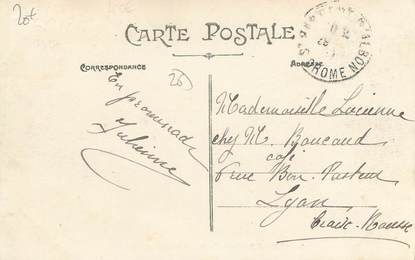 20€
CARTE POSTALE
CORRESPONDANCE
ADRESSE
25
En promenade
Julienne
Mademoiselle Lucienne
chez M. Boucaud
café
rue Bon-Pasteur
Lyon
Croix-Rousse
ALBON
DROME